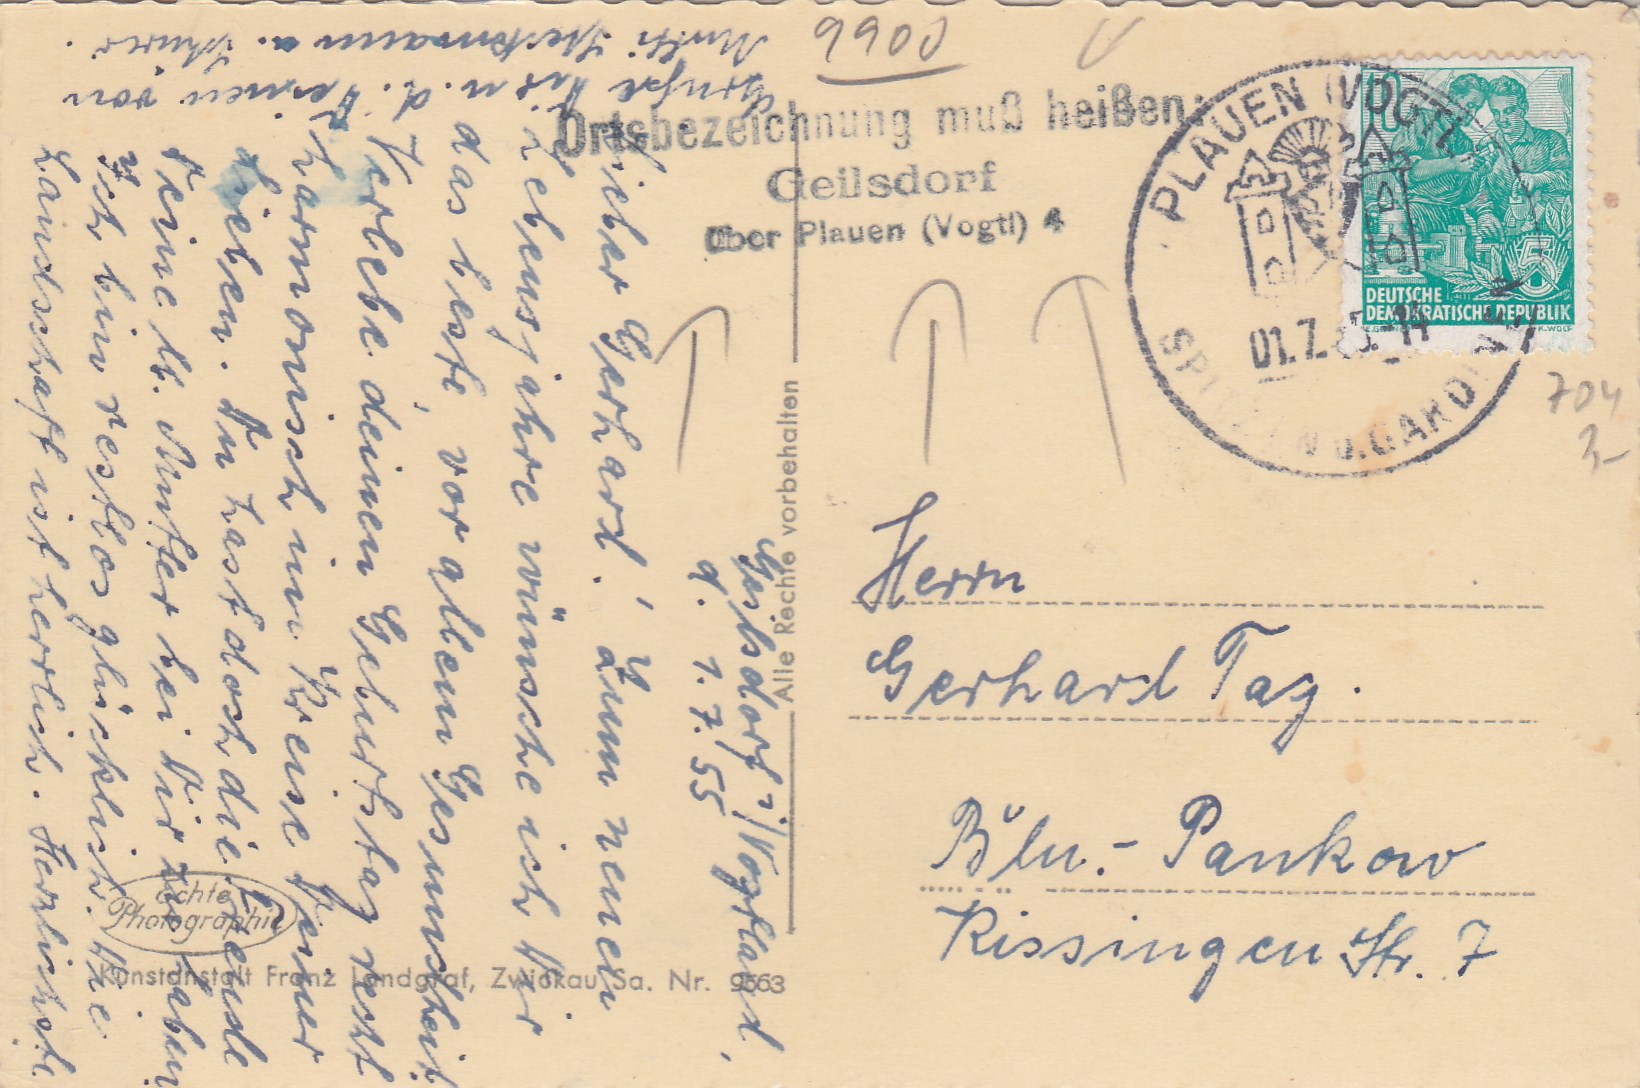 9900
Ortsbezeichnung muß heißen:
Geilsdorf
über Plauen (Vogtl) 4
PLAUEN (VOGTL)
01.7.55.-14
SPITZEN U. GARDINEN
10
5
DEUTSCHE
DEMOKRATISCHE REPUBLIK
K. WOLF
704
3,-
Geilsdorf i/Vogtland,
d. 1.7.55
Lieber Gerhard! Zum neuen
Lebensjahre wünsche ich Dir
das beste, vor allem Gesundheit
Verlebe deinen Geburtstag recht
harmonisch im Kreise Deiner
Lieben. Du hast doch die Freude
Deine lb. Mutter bei Dir zu haben
Ich bin restlos glücklich. Die
Landschaft ist herrlich. Herzlichste
Grüße Dir u. d. Deinen von
Mutti
Alle Rechte vorbehalten
Echte
Photographie
Kunstanstalt Franz Landgraf, Zwickau Sa. Nr. 9563
Herrn
Gerhard Tag.
Bln.- Pankow
Kissingen Str. 7